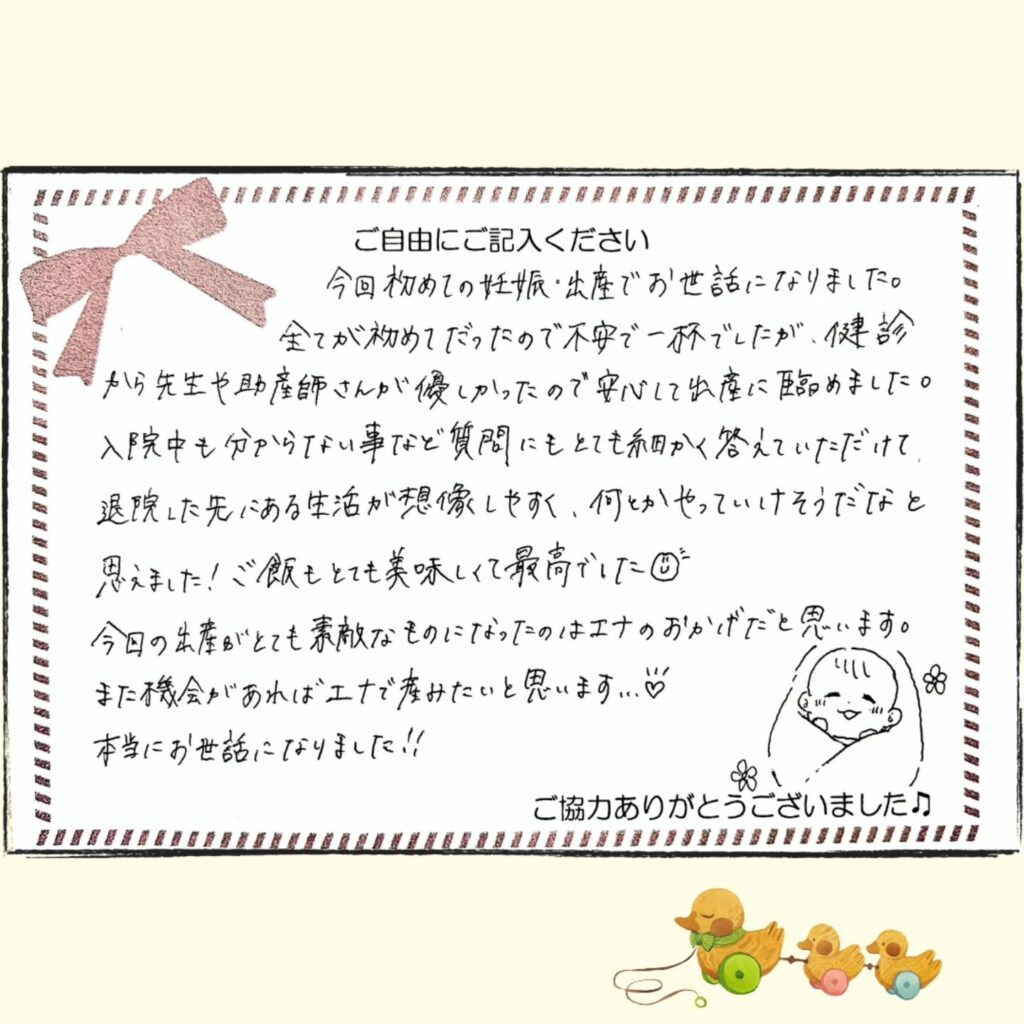 ご自由にご記入ください
今回初めての妊娠・出産でお世話になりました。
全てが初めてだったので不安で一杯でしたが、健診
から先生や助産師さんが優しかったので安心して出産に臨めました。
入院中も分からない事など質問にもとても細かく答えていただけて、
退院した先にある生活が想像しやすく、何とかやっていけそうだなと
思えました!ご飯もとても美味しくて最高でした
今回の出産がとても素敵なものになったのはエナのおかげだと思います。
また機会があればエナで産みたいと思います...♡
本当にお世話になりました!!
ご協力ありがとうございました♫